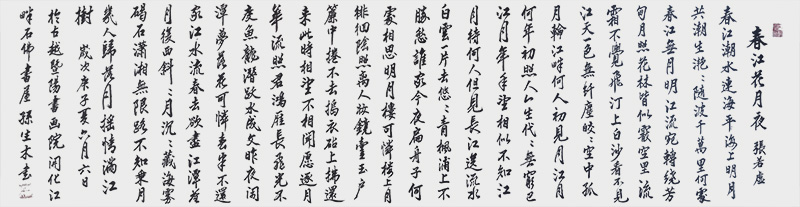 春江花月夜 張若虛
春江潮水連海平海上明月
共潮生灧々隨波千萬里何處
春江無月明江流宛轉繞芳
甸月照花林皆似霰空里流
霜不覺飛汀上白沙看不見
江天一色無纖塵皎々空中孤
月輪江畔何人初見月江月
何年初照人人生代々無窮已
江月年年望相似不知江
月待何人但見長江送流水
白雲一片去悠々青楓浦上不
勝愁誰家今夜扁舟子何
處相思明月樓可憐樓上月
徘徊應照離人妝鏡臺玉戶
簾中捲不去搗衣砧上拂還
來此時相望不相聞愿逐月
華流照君鴻雁長飛光不
度魚龍潛躍水成文昨夜閑
潭夢落花可憐春半不還
家江水流春去欲盡江潭落
月復西斜々月沉々藏海霧
碣石瀟湘無限路不知乘月
幾人歸落月搖情滿江
樹 歲次庚子夏六月六日
於古越暨陽書畫院江
畔石佛書屋 孫生木書